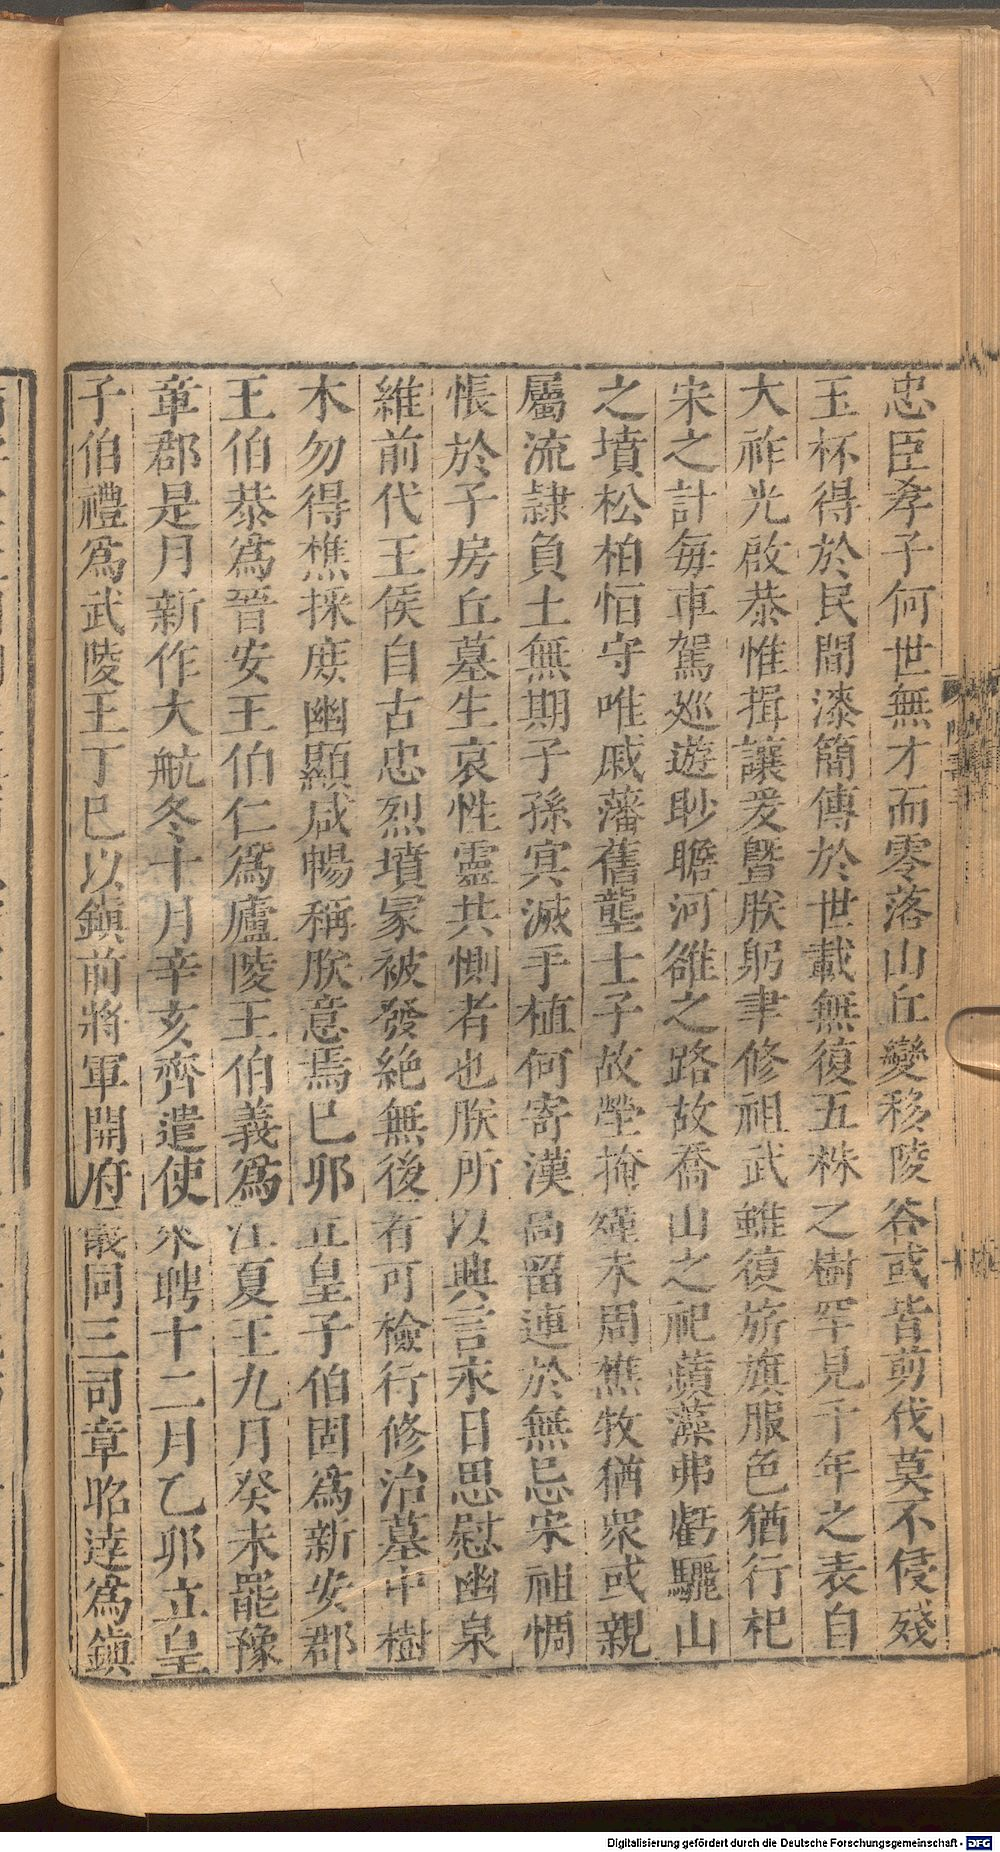 忠臣孝子何世無才而零落山丘變移陵谷或皆剪伐莫不侵殘
玉杯得於民間漆簡傳於世載無復五株之樹罕見千年之表自
大祚光啟恭惟揖讓爰暨朕躬聿修祖武雖復旂旗服色猶行杞
宋之計每車駕巡遊眇瞻河雒之路故喬山之祀蘋藻弗虧驪山
之墳松柏恒守唯戚藩舊壟士子故塋掩殣未周樵牧猶衆或親
屬流隷負土無期子孫㝠滅手植何寄漢高留連於無忌宋祖惆
悵於子房丘墓生哀性靈共惻者也朕所以興言永日思慰幽泉
維前代王侯自古忠烈墳冢被發絶無後者可檢行修治墓中樹
木勿得樵採庶幽顯咸暢稱朕意焉巳卯立皇子伯固爲新安郡
王伯恭爲晉安王伯仁爲廬陵王伯義爲江夏王九月癸未罷豫
章郡是月新作大航冬十月辛亥齊遣使來聘十二月乙卯立皇
子伯禮爲武陵王丁巳以鎭前將軍開府儀同三司章昭逹爲鎭
Digitalisierung gefördert durch die Deutsche Forschungsgemeinschaft - DFG